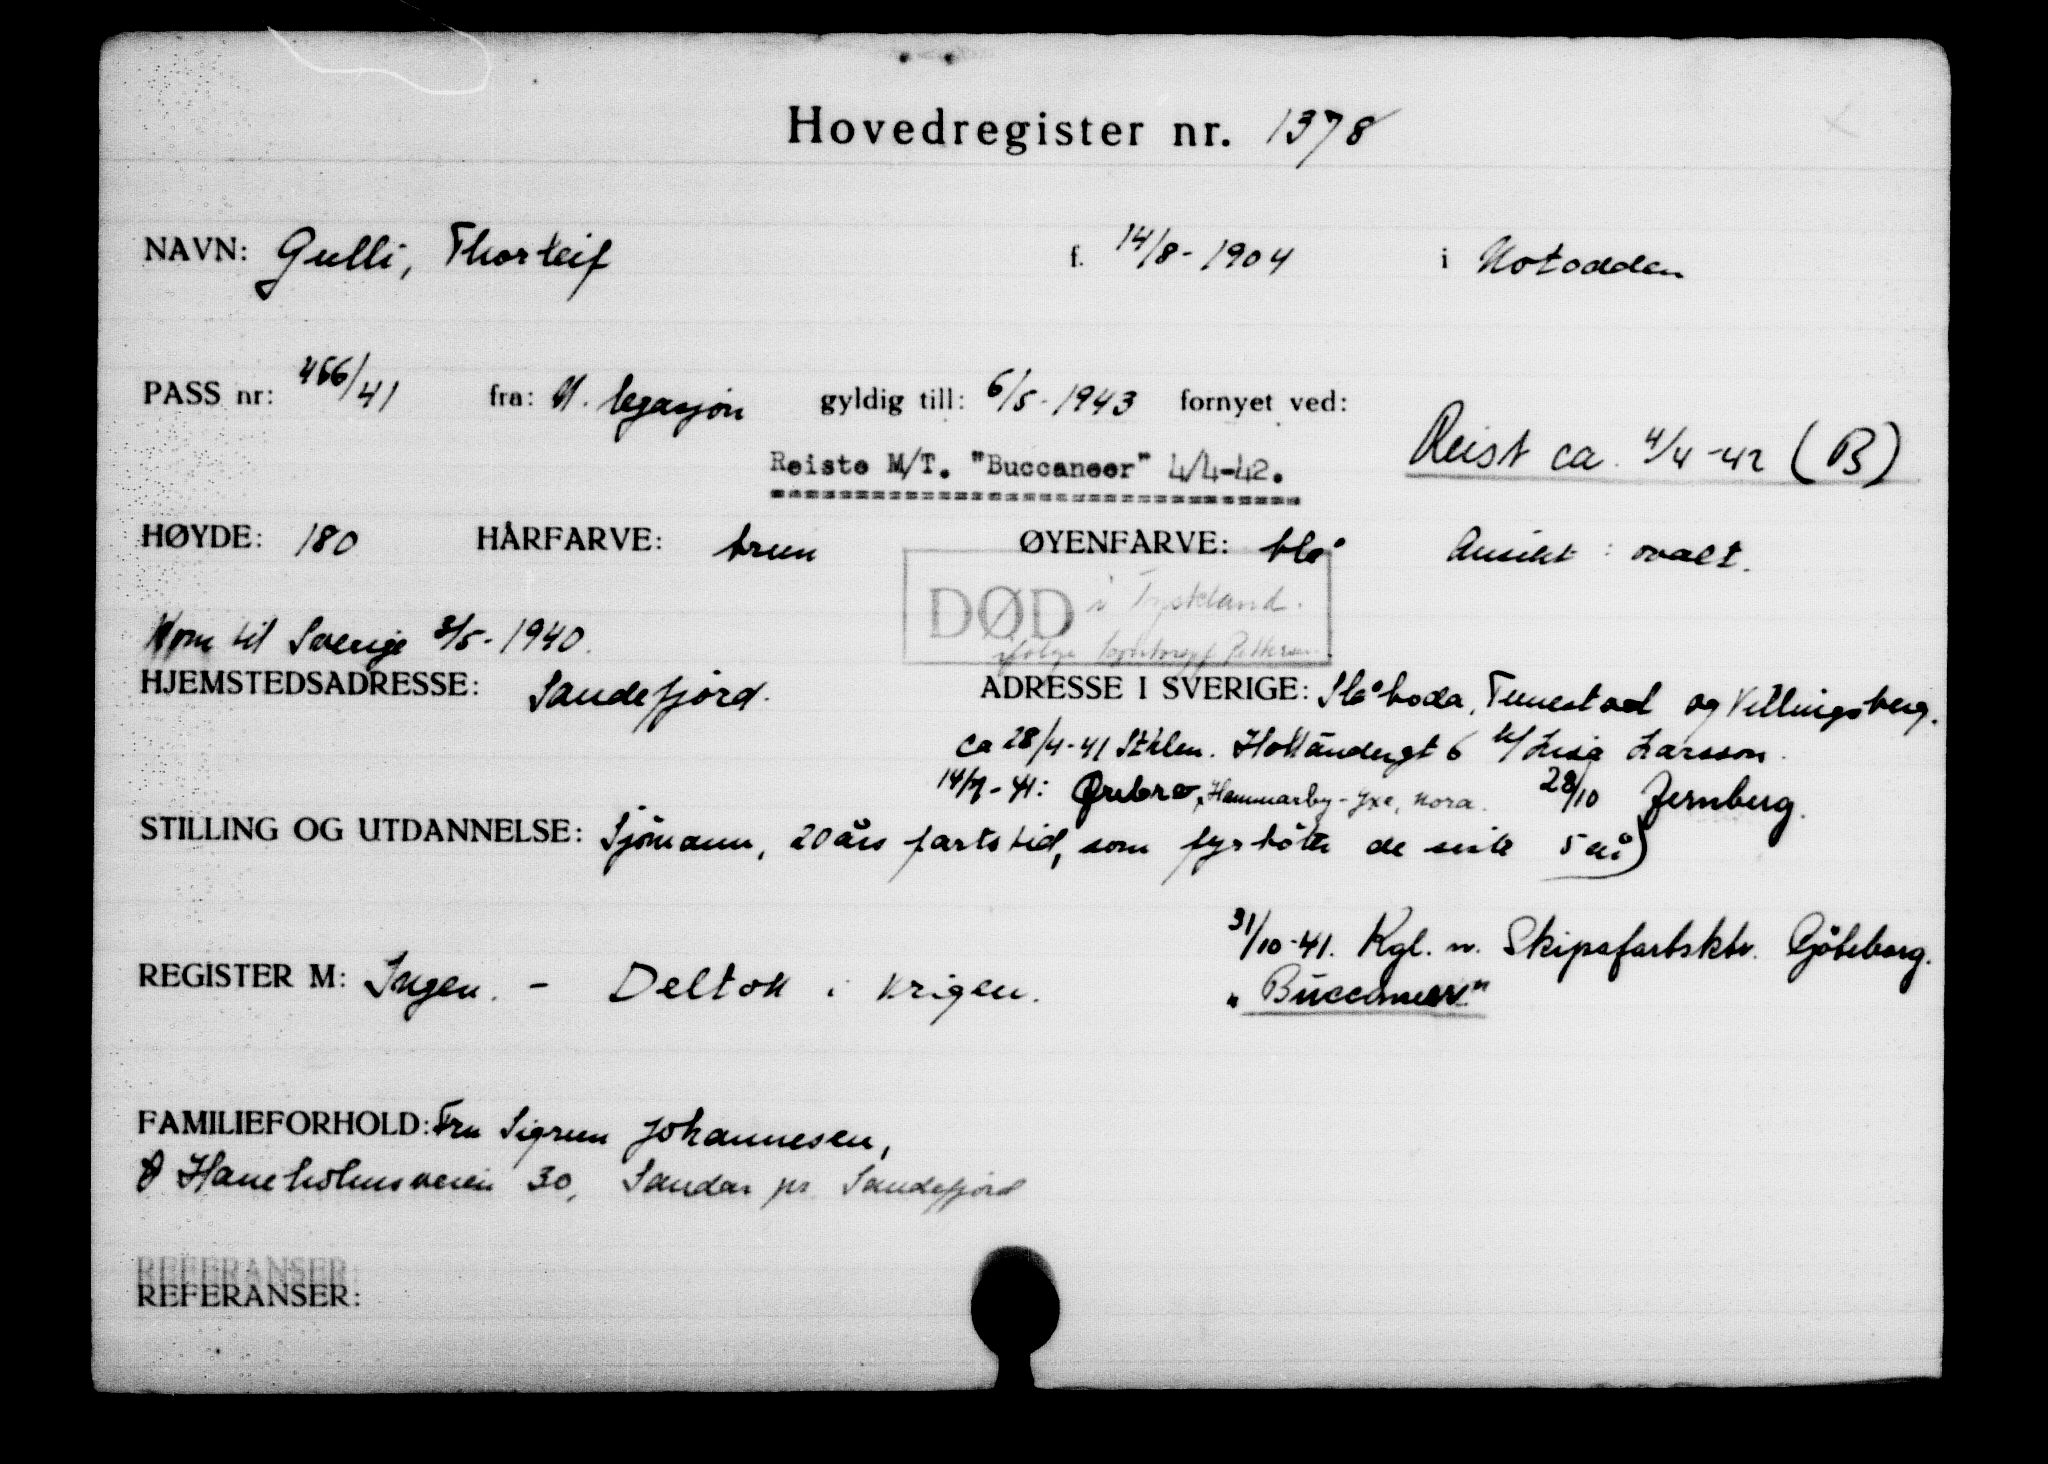 Hovedregister nr. 1378
NAVN: Gulli, Thorleif f. 14/8-1904 i Notodden
PASS nr: 466/41 fra: N. legasjon gyldig till: 6/5-1943 fornyet ved:
Reist ca. 4/4-42 (B)
Reiste M/T. "Buccaneer" 4/4-42.
HØYDE: 180 HÅRFARVE: brun ØYENFARVE: blå Ansikt: ovalt.
DØD i Tyskland.
ifølge Pettersen
Kom til Sverige 3/5-1940.
HJEMSTEDSADRESSE: Sandefjord. ADRESSE I SVERIGE: Slåboda, Tunestad og Villingsberg.
ca 28/4-41 Sthlm. Holländergt 6 Larsson.
14/7-41: Ørebro, Hammarby-Yxe, Nora. 28/10 Jernberg.
STILLING OG UTDANNELSE: Sjømann, 20 års fartstid, som fyrbøter de siste 5 år)
31/10-41. Kgl. n. Skipsfartsktr. Gøteborg.
REGISTER M: Ingen. - Deltok i krigen.
"Buccaneer"
FAMILIEFORHOLD: Fru Sigrun Johannesen,
Haneholmsveien 30, Sandar pr. Sandefjord
REFERANSER
REFERANSER: